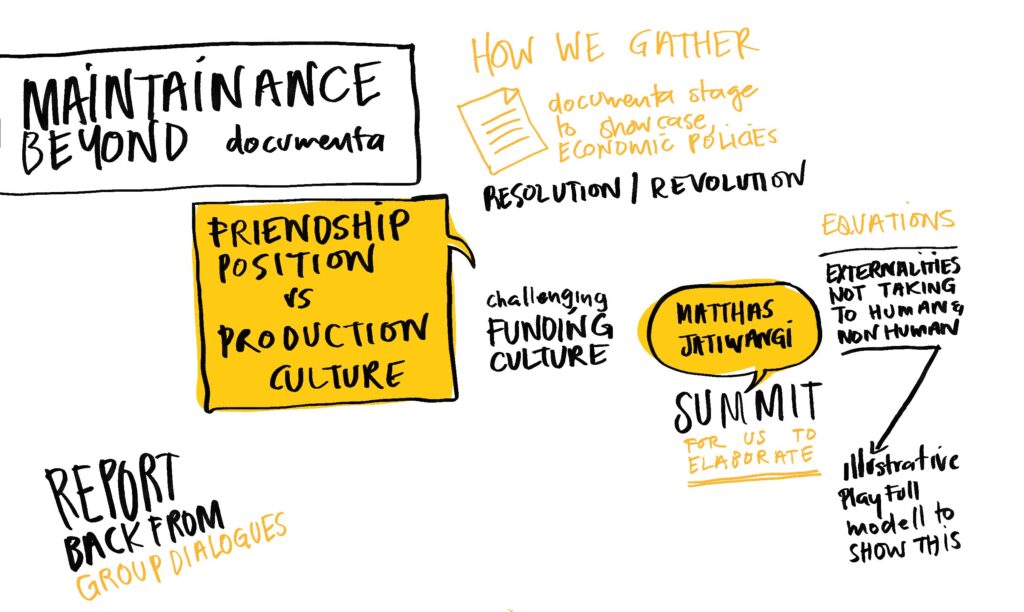 MAINTAINANCE
BEYOND documenta
HOW WE GATHER
documenta stage
to showcase,
ECONOMIC POLICIES
RESOLUTION / REVOLUTION
FRIENDSHIP
POSITION
vs
PRODUCTION
CULTURE
challenging
FUNDING
CULTURE
MATTHAS
JATIWANGI
SUMMIT
FOR US TO
ELABORATE
EQUATIONS
EXTERNALITIES
NOT TAKING
TO HUMAN &
NON HUMAN
illustrative
PlayFull
modell to
SHOW THIS
REPORT
BACK FROM
GROUP DIALOGUES